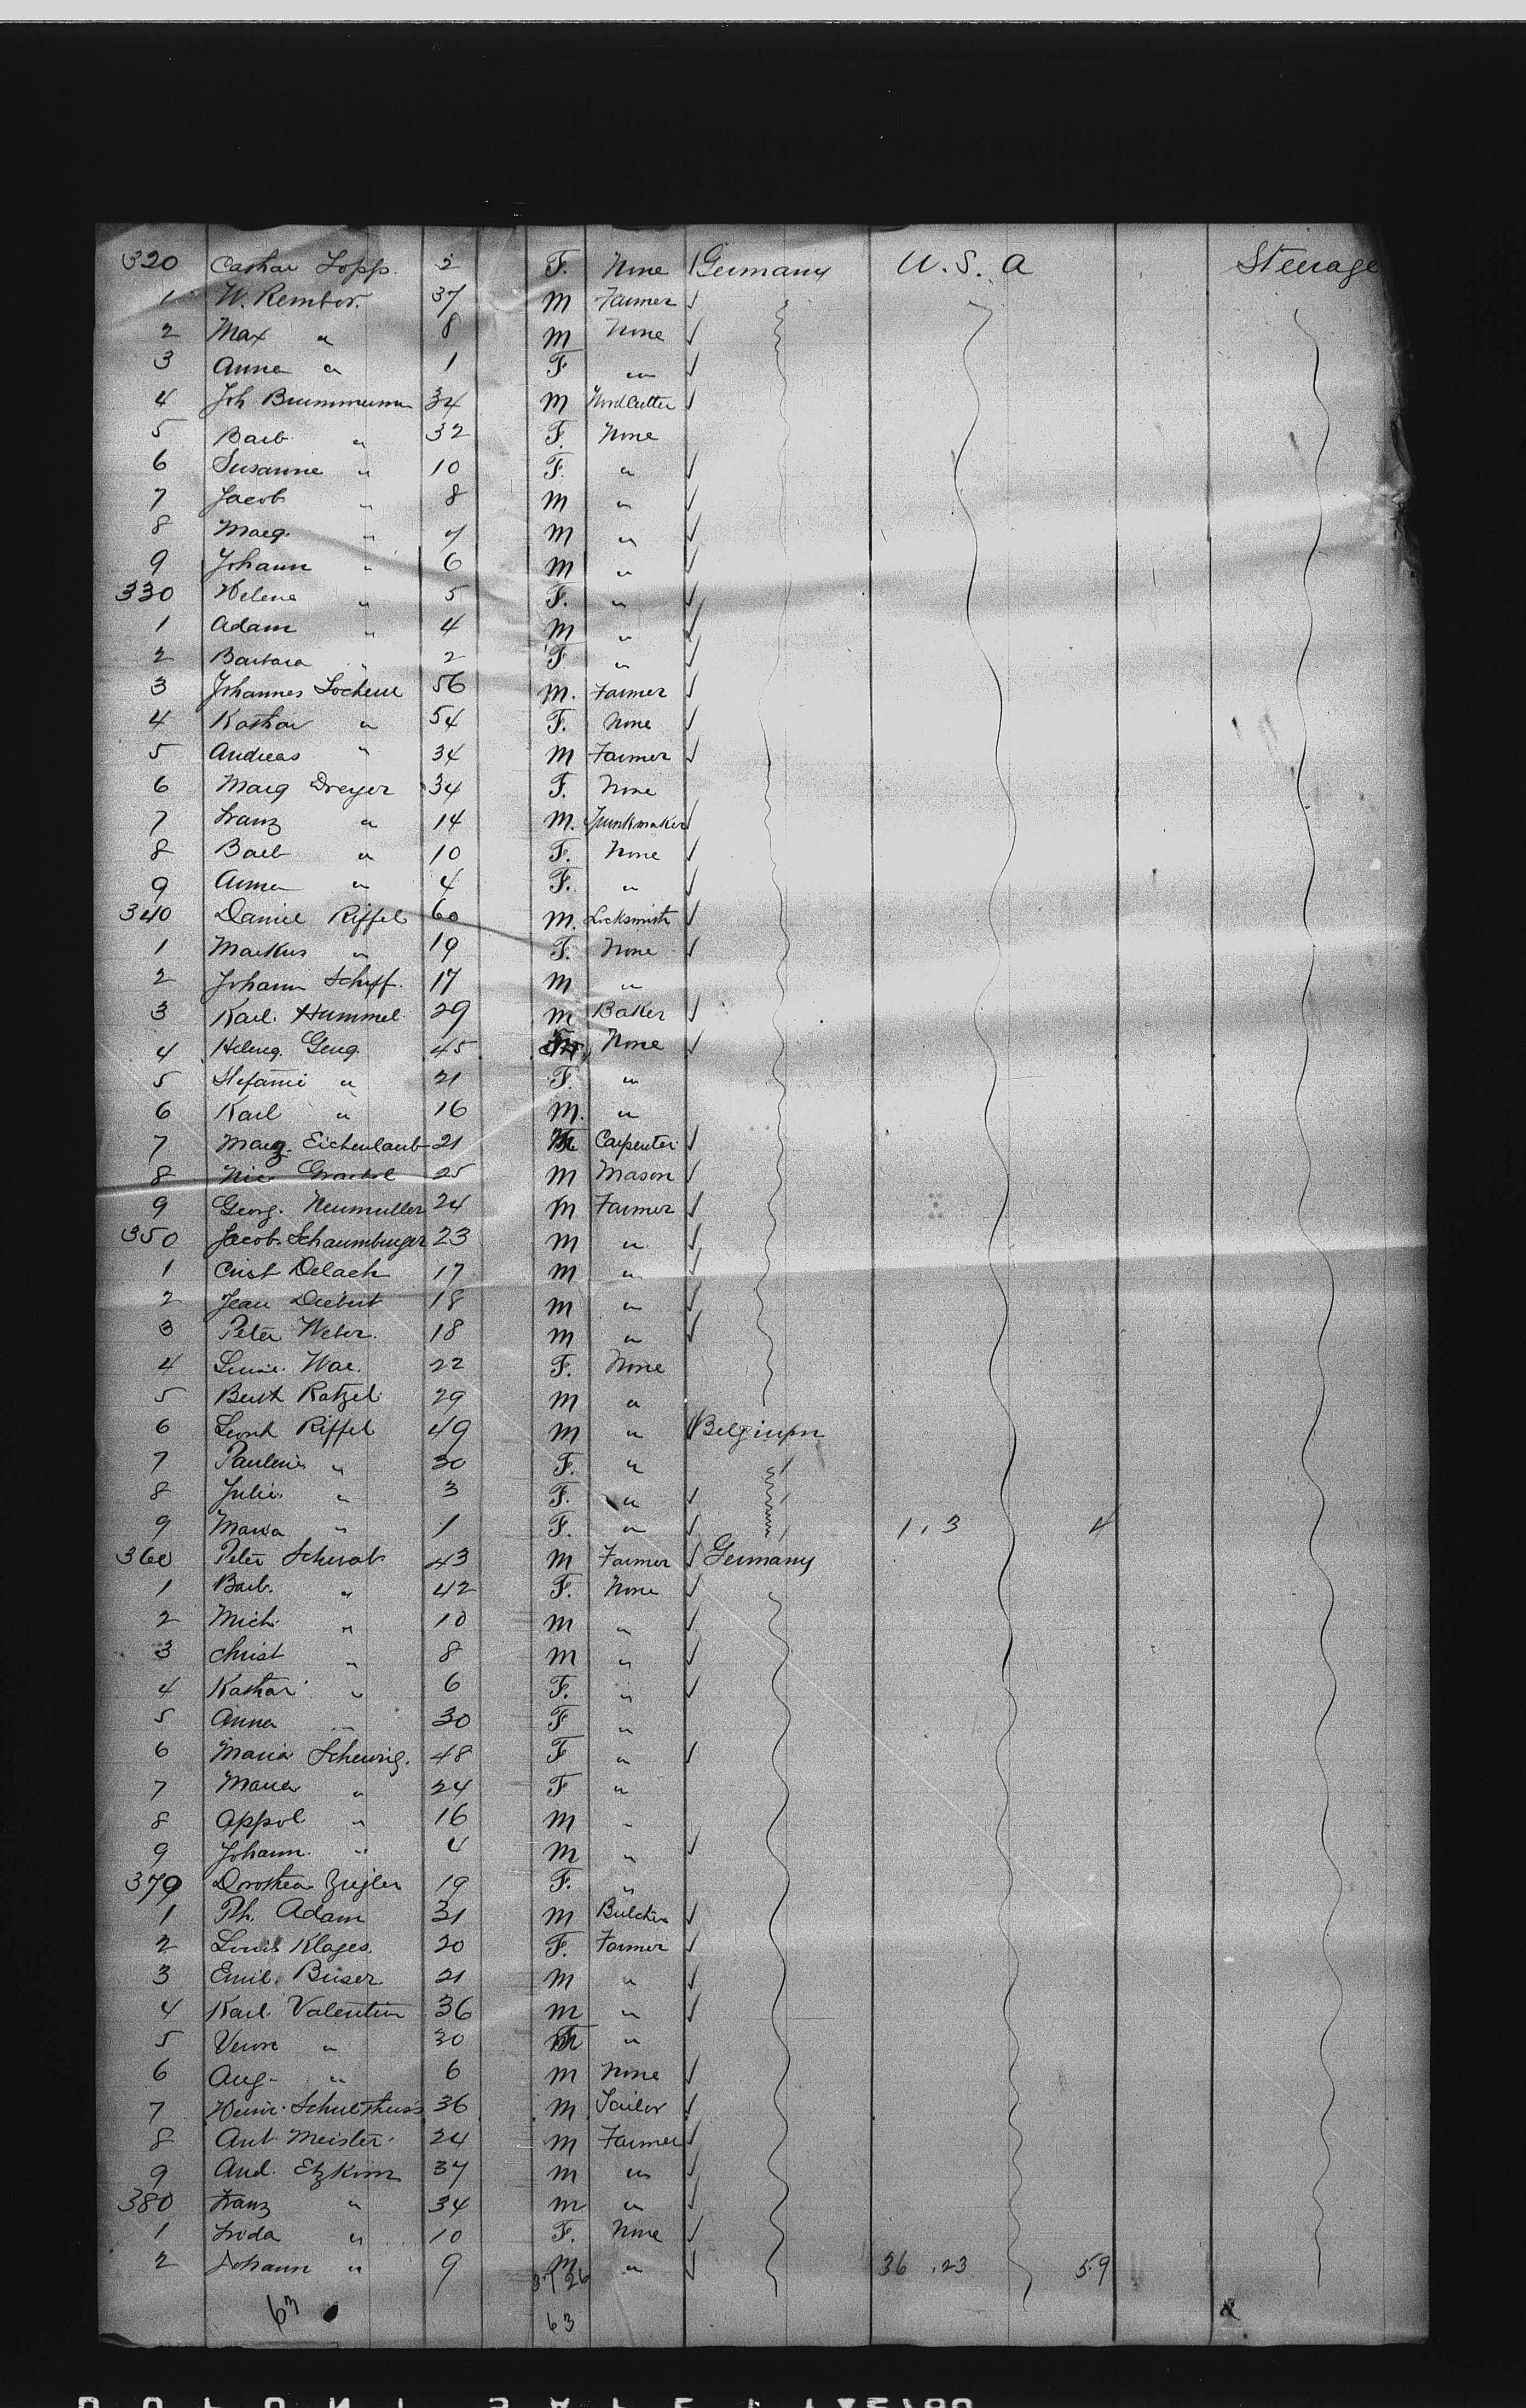 320 Cathar Lopp. 2 F. None Germany U.S.A Steerage
1 W. Rembor. 37 M Farmer
2 Max " 8 M None
3 Anna " 1 F "
4 Joh 34 M
5 Barb " 32 F. None
6 Susanne " 10 F. "
7 Jacob " 8 M "
8 Marg. " 7 M "
9 Johann " 6 M "
330 Helena " 5 F. "
1 Adam " 4 M "
2 Barbara " 2 F "
3 Johannes 56 M. Farmer
4 Kathar " 54 F. None
5 Andreas " 34 M Farmer
6 Marg Dreyer 34 F. None
7 Franz " 14 M. Trunkmaker
8 Barb " 10 F. None
9 Anna " 4 F. "
340 Daniel Riffel 60 M. Locksmith
1 Markus " 19 F. None
2 Johann Schiff. 17 M "
3 Karl. Hummel 29 M Baker
4 Geng. 45 None
5 Stefanie " 21 F. "
6 Karl " 16 M. "
7 Marg. Eichenlaub 21 Carpenter
8 Nic 25 M Mason
9 Georg. Neumuller 24 M Farmer
350 Jacob Schaumburger 23 M "
1 Crist Delach 17 M "
2 Jean 18 M "
3 Peter Weber. 18 M "
4 22 F. None
5 Ratzel 29 M "
6 Riffel 49 M " Belgium
7 " 30 F. "
8 Julie " 3 F. "
9 Maria " 1 F. " 1 . 3 4
360 Peter Schwab 43 M Farmer Germany
1 Barb. " 42 F. None
2 Mich. " 10 M "
3 Christ " 8 M "
4 Kathar " 6 F. "
5 Anna " 30 F "
6 Maria 48 F "
7 Maria " 24 F "
8 " 16 M "
9 Johann. " 4 M "
370 Dorothea Ziegler 19 F. "
1 Ph. Adam 31 M Butcher
2 Louis Klages. 20 F. Farmer
3 Emil. Buser 21 M "
4 Karl Valentin 36 M "
5 " 30 "
6 Aug. " 6 M None
7 Heinr. Schultheiss 36 M Tailor
8 Ant. Meister 24 M Farmer
9 And. Etzkorn 37 M "
380 Franz " 34 M "
1 Frida " 10 F. None
2 Johann " 9 M " 36 . 23 59
37 26
63 63